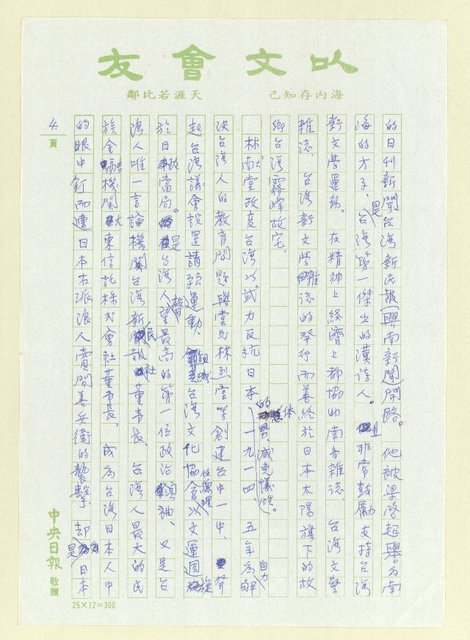 以文會友
海內存知己 天涯若比鄰
的日刊新聞台灣新民報(興南新聞)開路。他被梁啟超譽為南
海的才子，是台灣第一傑出的漢詩人。非常鼓勵支持台灣
新文學運動。在精神上經濟上都協助南音雜誌、台灣文藝
雜誌、台灣新文學雜誌的發行而善終於日本太陽旗下的故
鄉台灣霧峰故宅。
林獻堂改變台灣以武力反抗日本的減免犧牲。一九一四、五年為解
決台灣人的教育問題與堂兄林烈堂等創建台中一中。發
起台灣議會設置請願運動、組織台灣文化協會任總理以文運周旋
於日當局。是台灣人最高的第一位政治領袖，又是台
灣人唯一言論機關台灣新民報社董事長、台灣人最大的民
族金融機關大東信託株式會社董事長、成為台灣日本人中
的眼中釘而遭日本右派浪人賣間善兵衛的襲擊，却是日本
4
頁
中央日報 敬贈
25×12=300